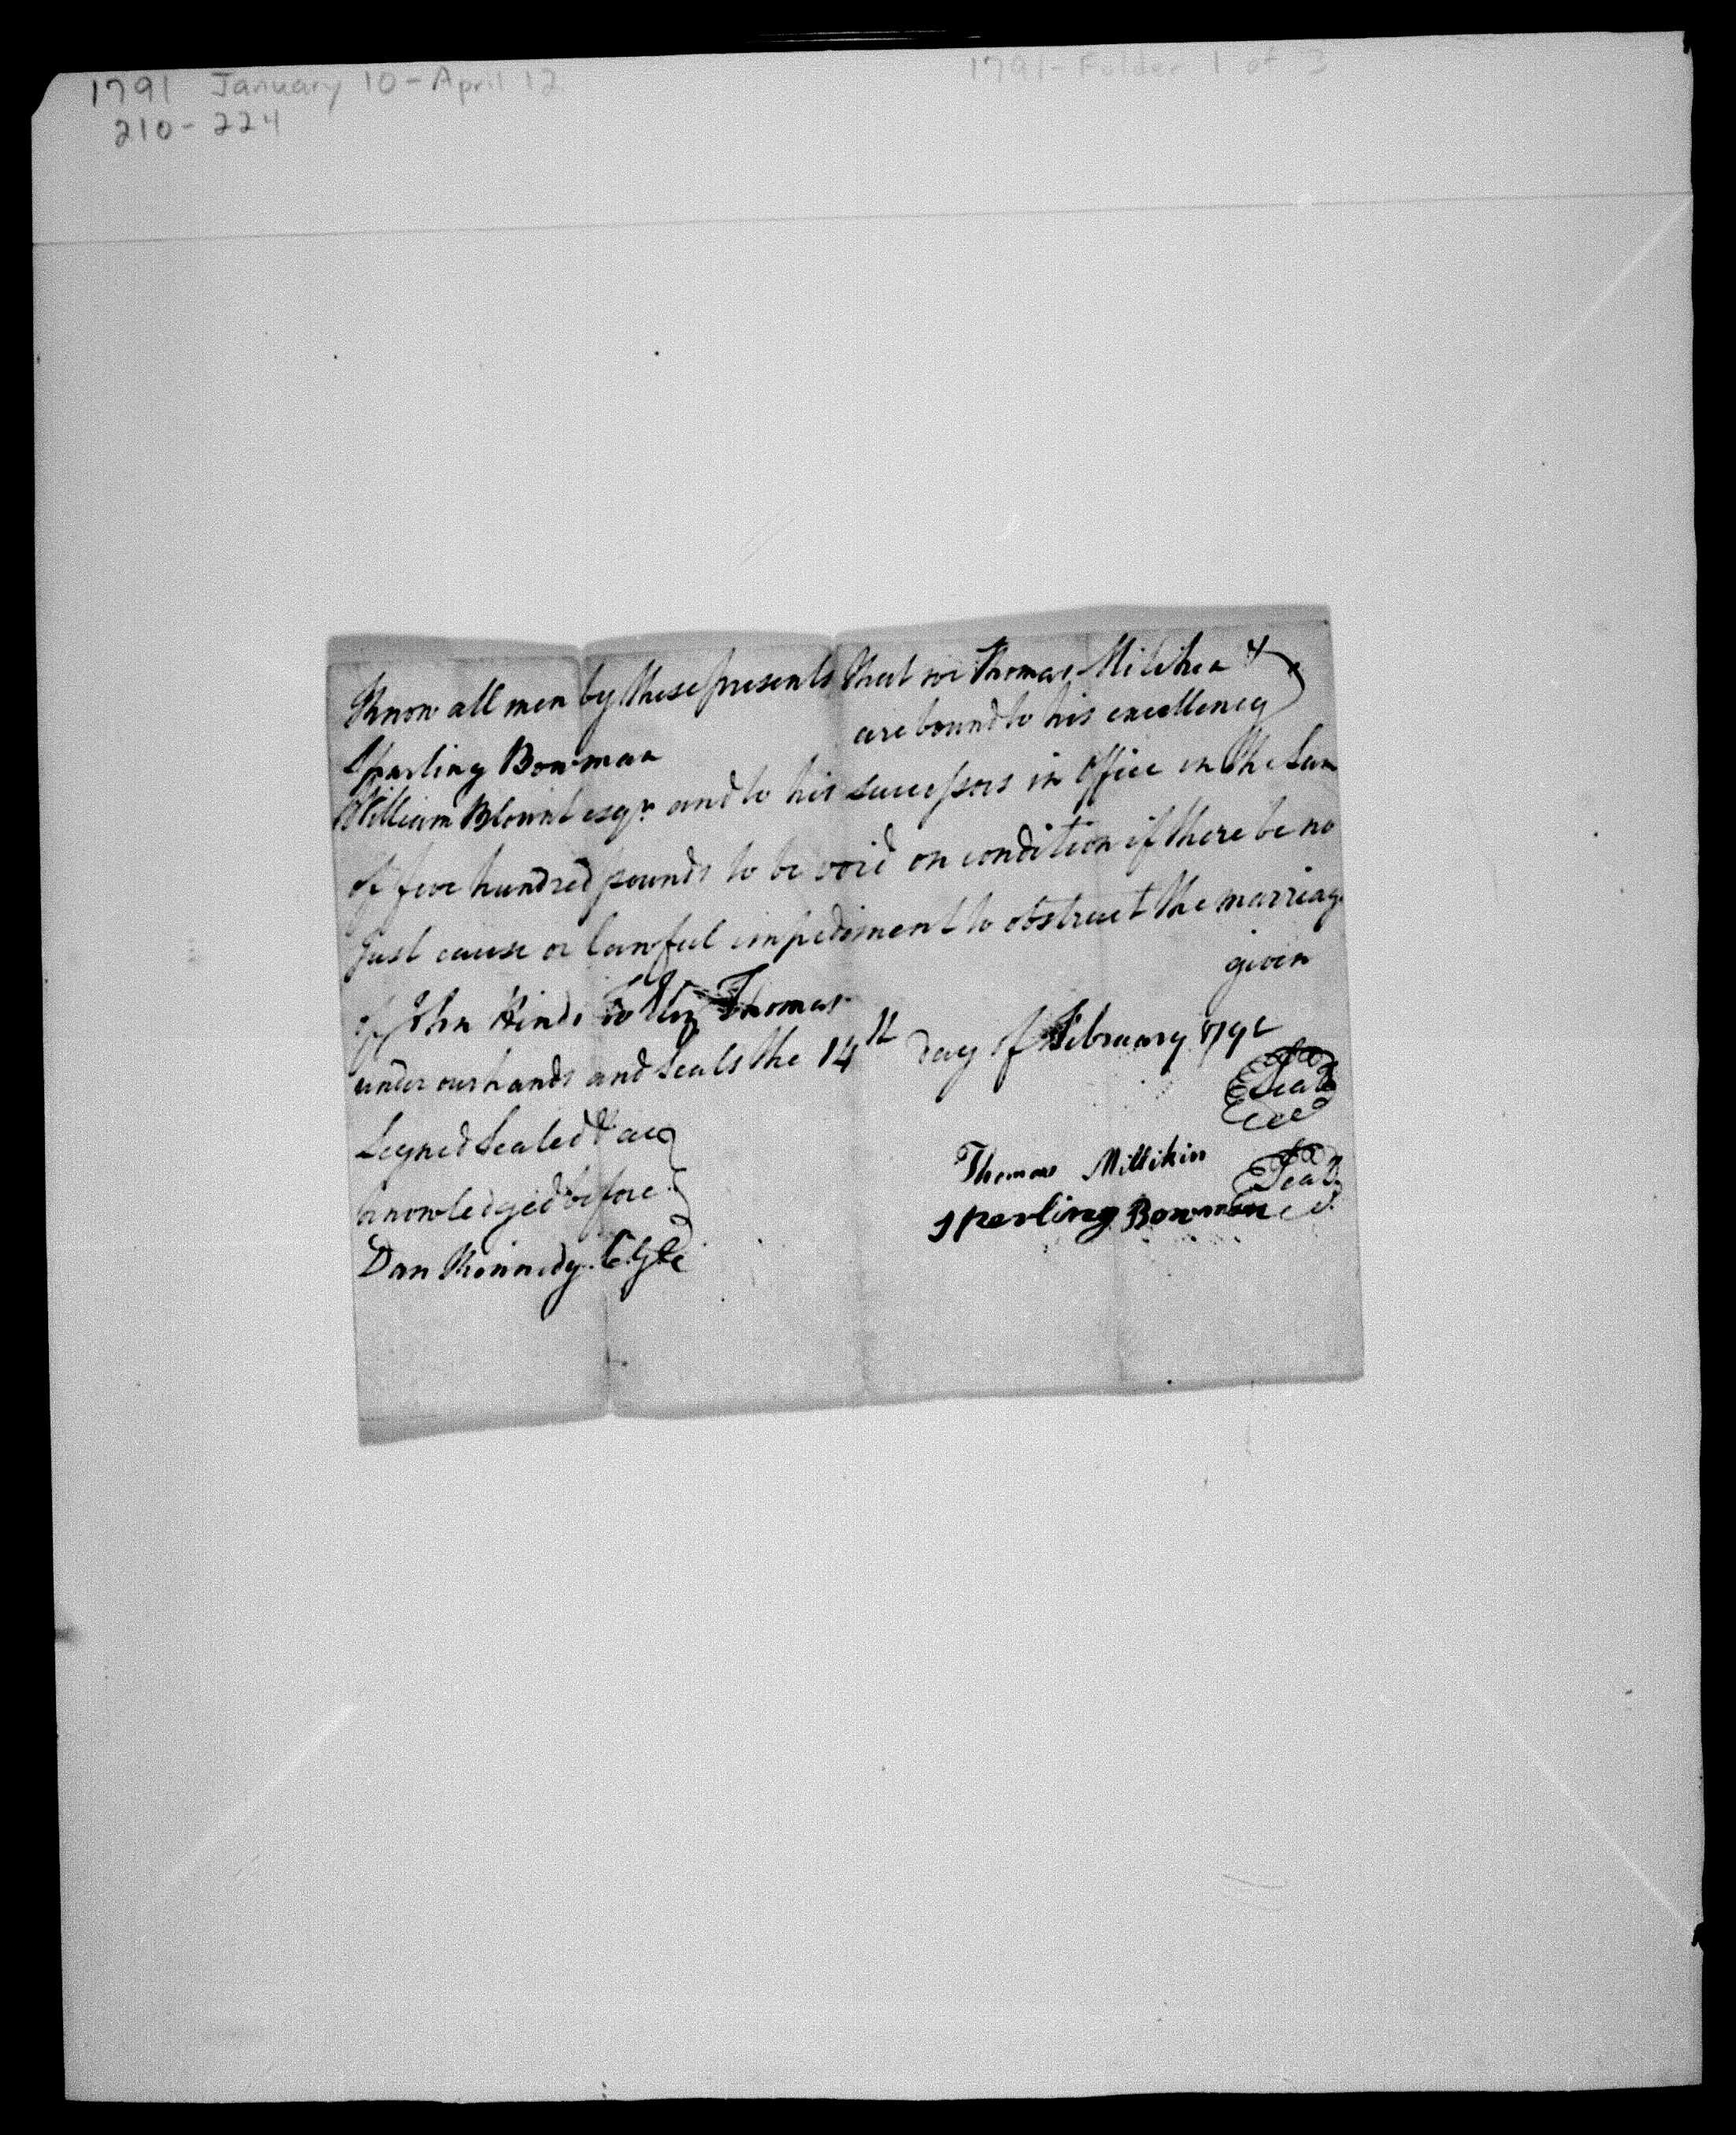 1791 January 10 - April 12
210 - 224
1791 - Folder 1 of 3
Know all men by these presents that we Thomas Miliken &
Sparling Bowman are bound to his excellency
William Blount esqr. and to his successors in office in the Sum
of five hundred pounds to be void on condition if there be no
Just cause or lawful impediment to obstruct the marriage
of John Hinds to Thomas given
under our hands and Seals the 14th day of February 1791
Signed Sealed & ac
knowledged before
Dan Kennedy
Seal
Thomas Millikin Seal
Sperling Bowman